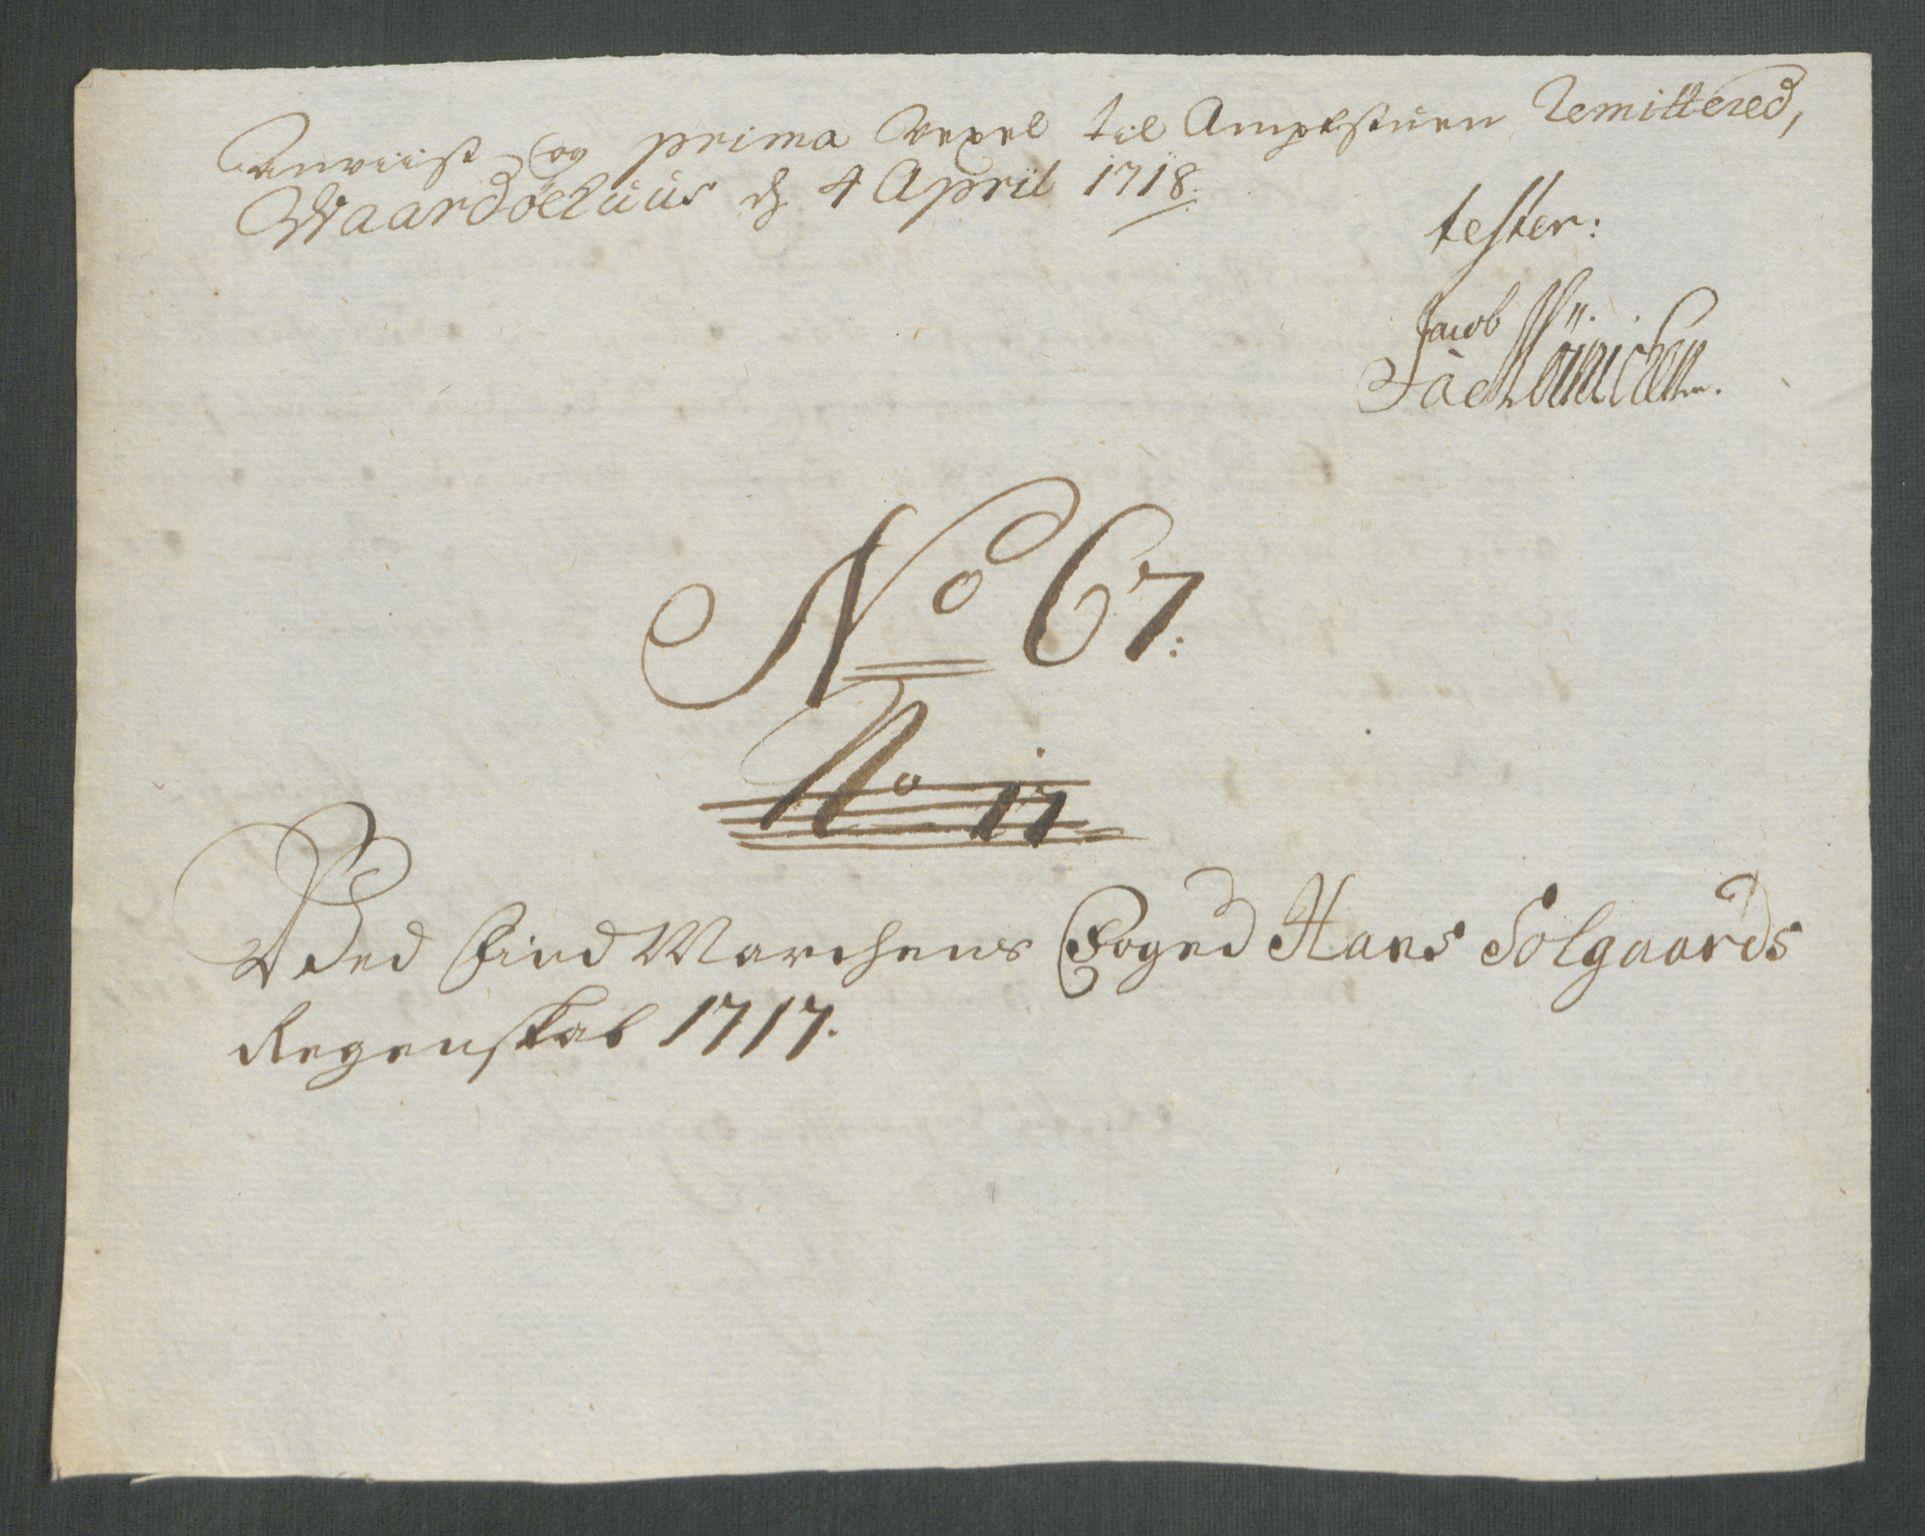 Anviist og prima Vexel til Ampstuen Remittered,
Waardøehuus d 4 April 1718.
tester:
Jacob
No 67:
No 17
Ved Find Marchens Foged Hans Solgaards
Regenskab 1717.